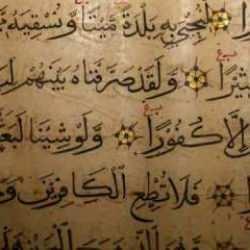 لِنُحْيِيَ بِهِ بَلْدَةً مَّيْتًا وَنُسْقِيَهُ
وَلَقَدْ صَرَّفْنَاهُ بَيْنَهُمْ
إِلَّا كُفُورًا وَلَوْ شِئْنَا
فَلَا تُطِعِ الْكَافِرِينَ